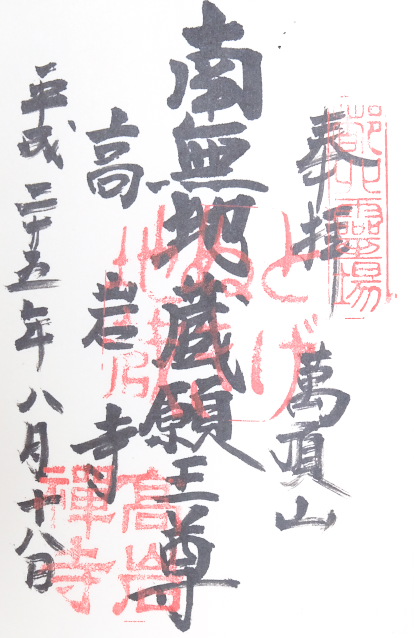 奉拝
萬頂山
南無地蔵願王尊
高岩寺
平成二十五年八月十八日
とげぬき地蔵
高岩禅寺